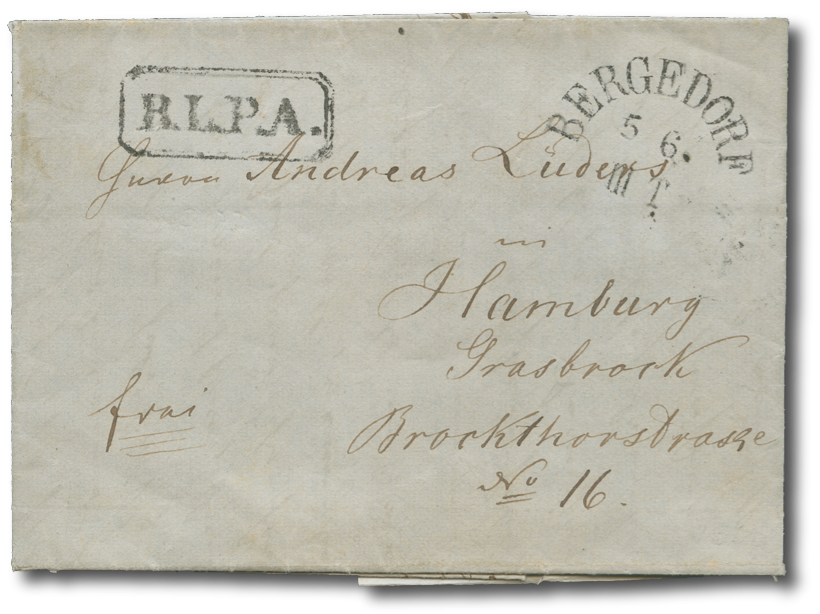 B.L.P.A.
BERGEDORF
5 6.
III T.
Herrn Andreas Lüders
in
Hamburg
Grasbrock
Brockthorstrasse
No 16.
frei